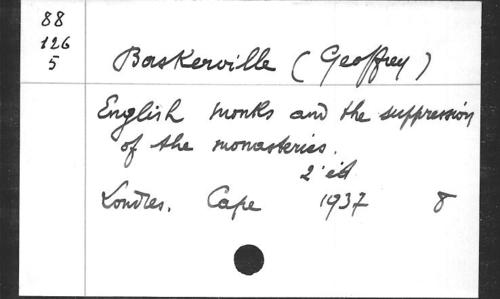 88
126
5
Baskerville (Geoffrey)
English monks and the suppression
of the monasteries.
2e éd
Londres. Cape 1937 8